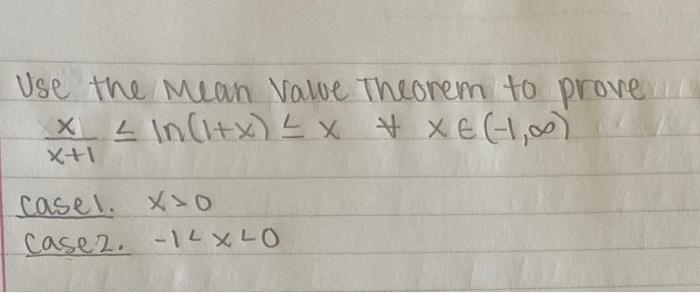 Use the Mean Value Theorem to prove
x/(x+1) ≤ ln(1+x) ≤ x ∀ x ∈ (-1,∞)
case1. x>0
case2. -1<x<0